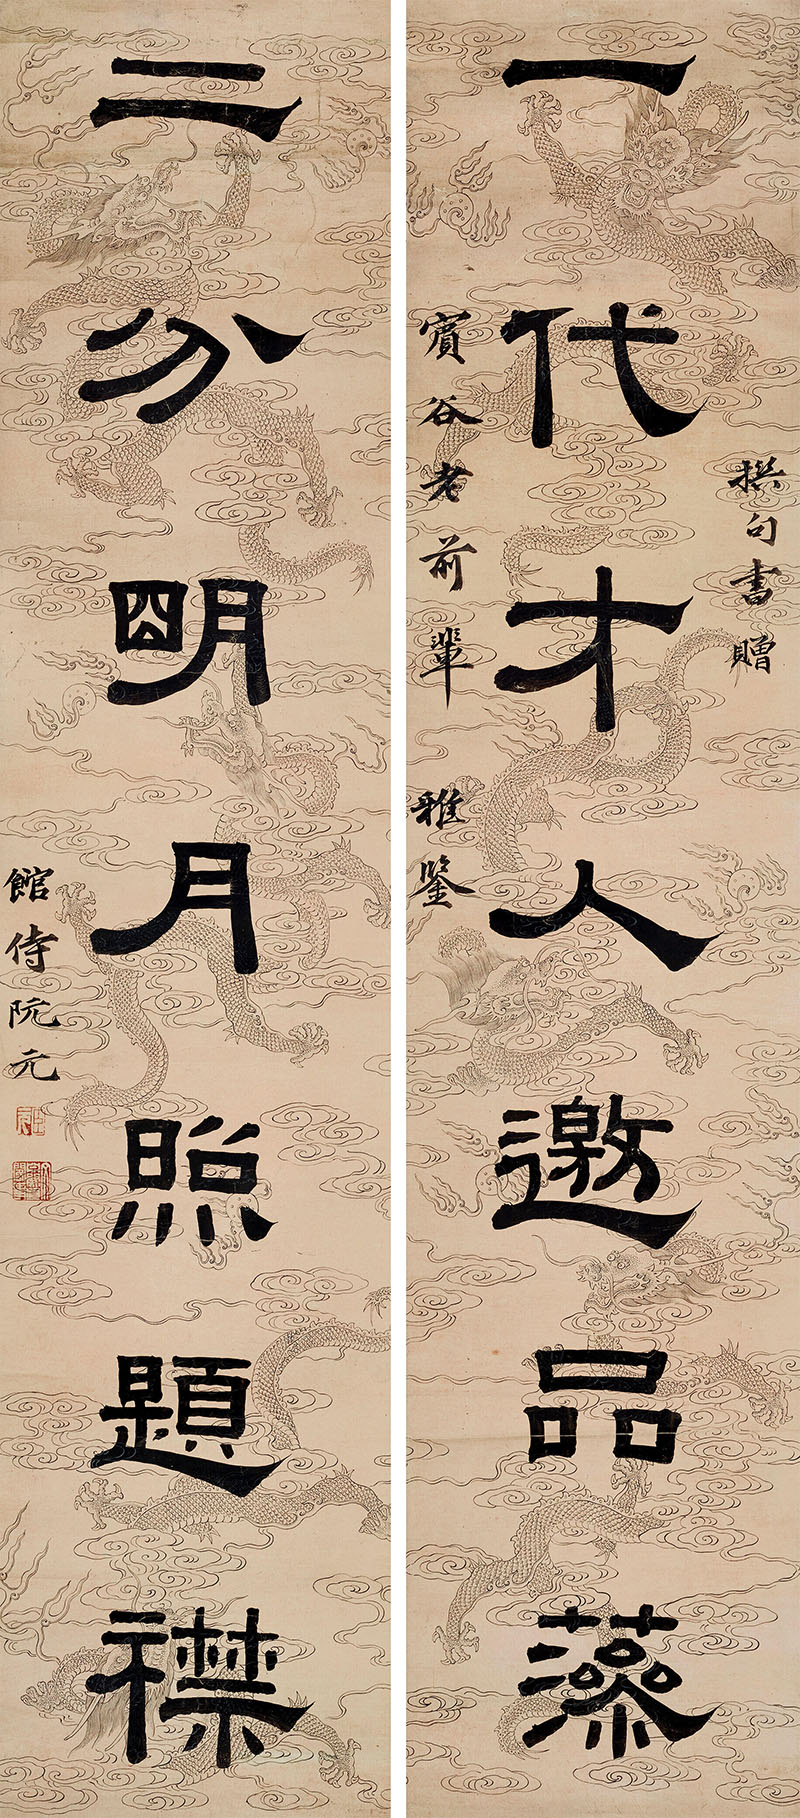 一代才人邀品藻
撰句書贈
賓谷老前輩
雅鑒
二分明月照題襟
館侍阮元